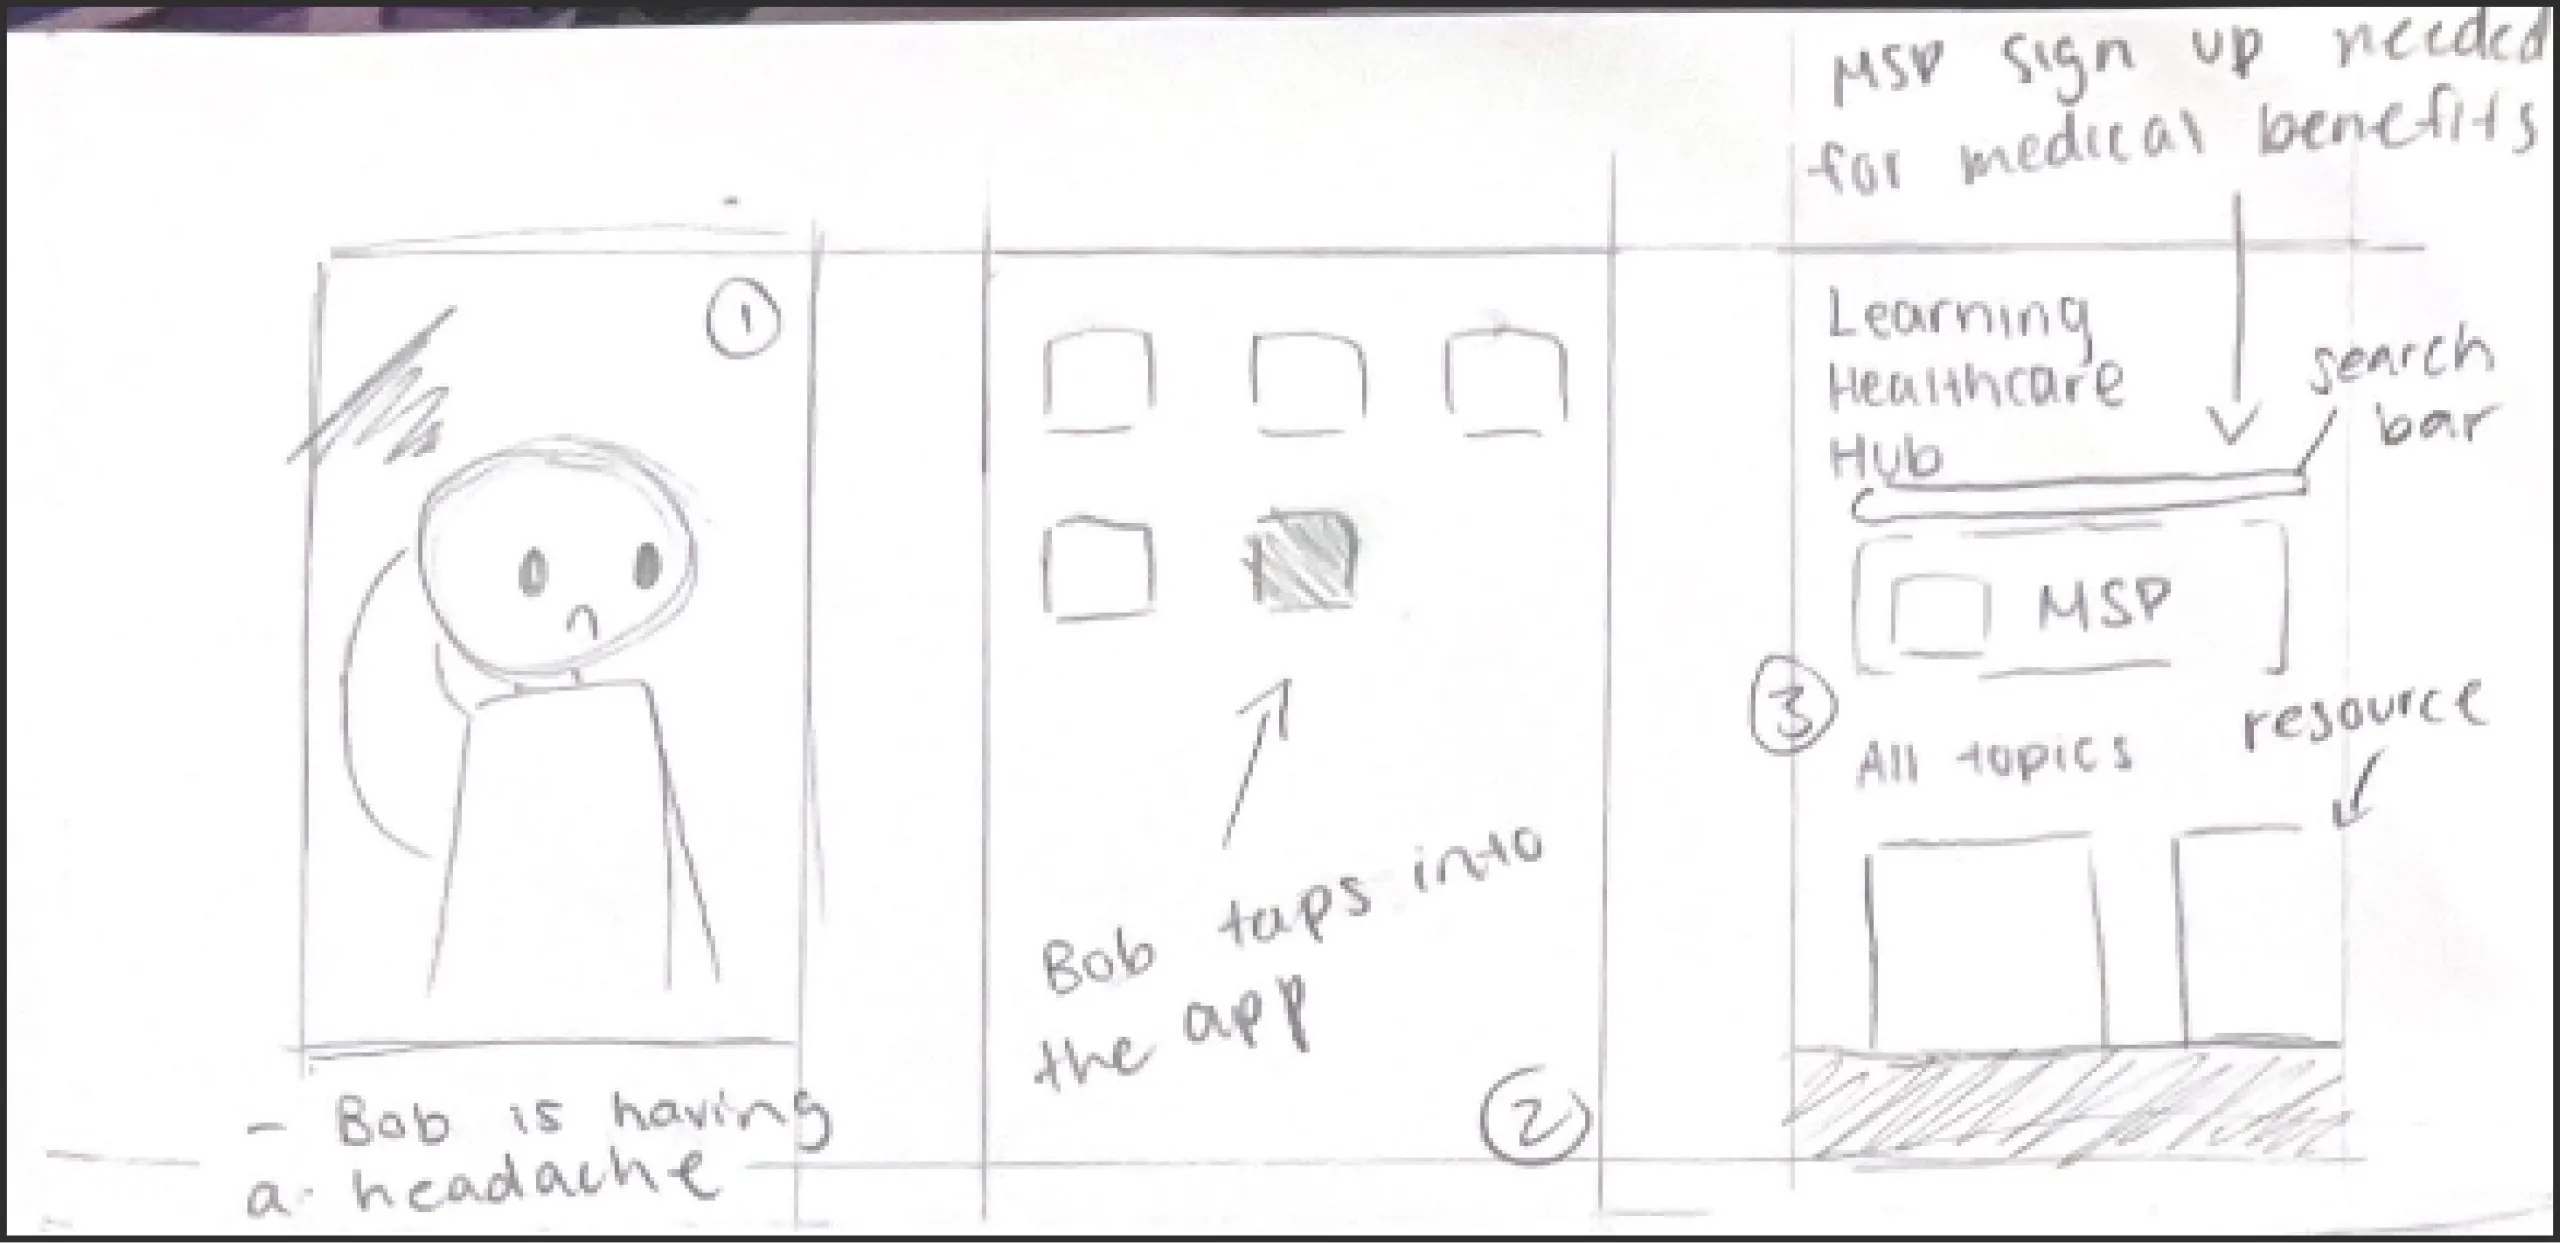 1
- Bob is having
a headache
Bob taps into
the app
2
MSP sign up needed
for medical benefits
Learning
Healthcare
Hub
search
bar
MSP
3
resource
All topics